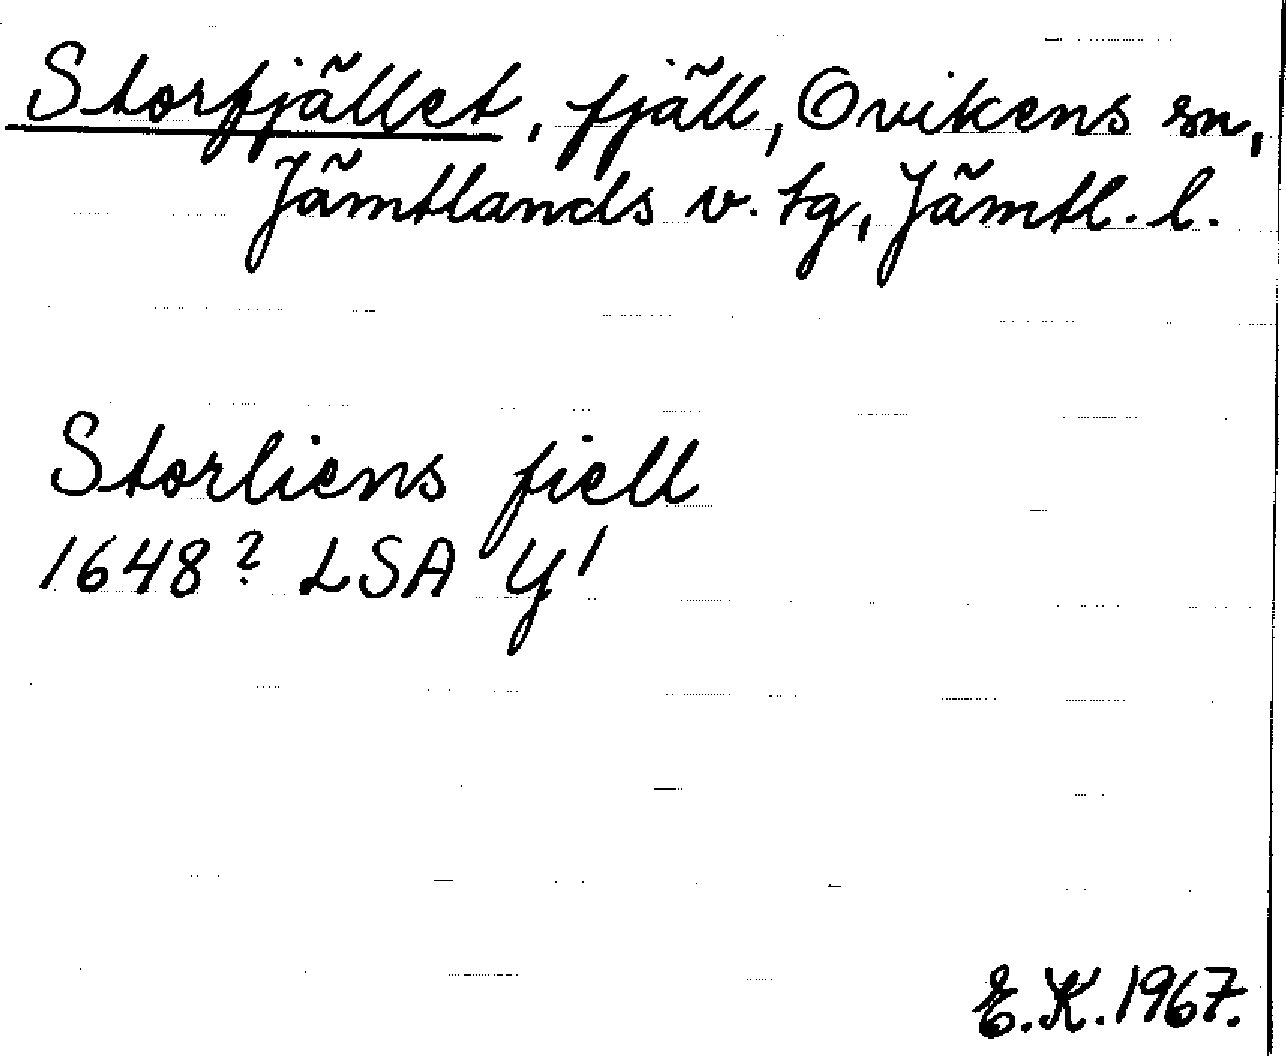 Storfjället, fjäll, Ovikens sn,
Jämtlands v. tg, Jämtl. l.
Storliens fiell
1648? LSA Y1
E.K. 1967.